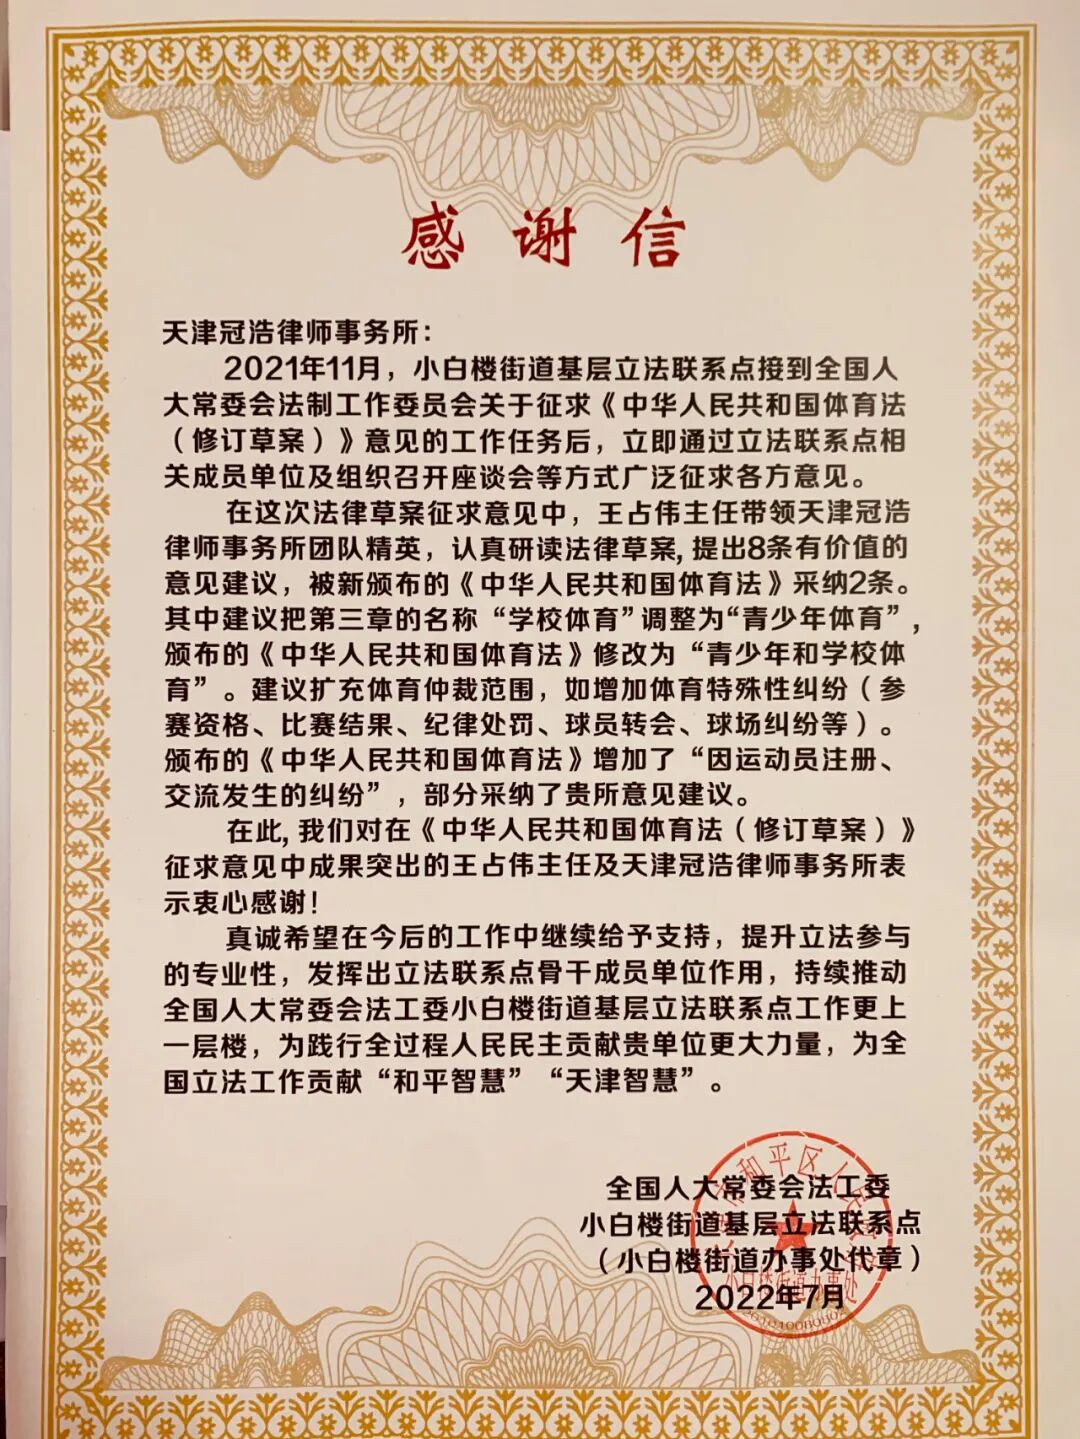 感谢信
天津冠浩律师事务所：
2021年11月，小白楼街道基层立法联系点接到全国人
大常委会法制工作委员会关于征求《中华人民共和国体育法
（修订草案）》意见的工作任务后，立即通过立法联系点相
关成员单位及组织召开座谈会等方式广泛征求各方意见。
在这次法律草案征求意见中，王占伟主任带领天津冠浩
律师事务所团队精英，认真研读法律草案，提出8条有价值的
意见建议，被新颁布的《中华人民共和国体育法》采纳2条。
其中建议把第三章的名称“学校体育”调整为“青少年体育”，
颁布的《中华人民共和国体育法》修改为“青少年和学校体
育”。建议扩充体育仲裁范围，如增加体育特殊性纠纷（参
赛资格、比赛结果、纪律处罚、球员转会、球场纠纷等）。
颁布的《中华人民共和国体育法》增加了“因运动员注册、
交流发生的纠纷”，部分采纳了贵所意见建议。
在此，我们对在《中华人民共和国体育法（修订草案）》
征求意见中成果突出的王占伟主任及天津冠浩律师事务所表
示衷心感谢！
真诚希望在今后的工作中继续给予支持，提升立法参与
的专业性，发挥出立法联系点骨干成员单位作用，持续推动
全国人大常委会法工委小白楼街道基层立法联系点工作更上
一层楼，为践行全过程人民民主贡献贵单位更大力量，为全
国立法工作贡献“和平智慧”“天津智慧”。
全国人大常委会法工委
小白楼街道基层立法联系点
（小白楼街道办事处代章）
2022年7月
天津市和平区人民政府
小白楼街道办事处